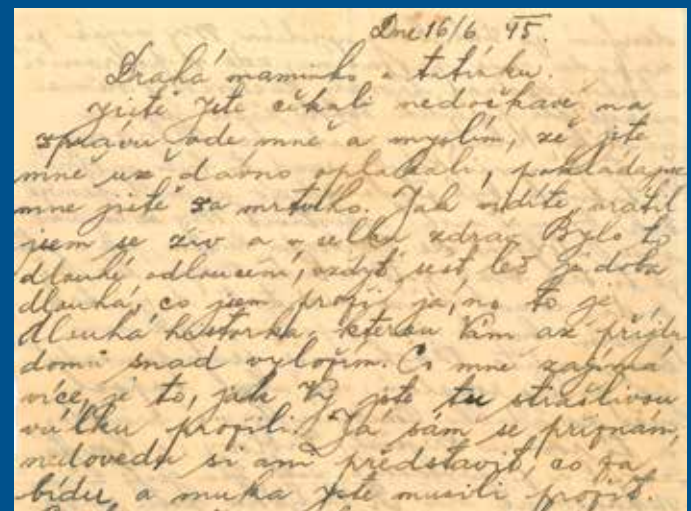 Dne 16/6 45.
Drahá maminko a tatínku.
Jistě jste čekali nedočkavě na
zprávu ode mně a myslím, že jste
mně už dávno oplakali, pokládajíc
mne jistě za mrtvého. Jak vidíte, vrátil
jsem se živ a v celku zdráv. Bylo to
dlouhé odloučení, vždyť šest let je doba
dlouhá, co jsem prožil já, no to je
dlouhá historka, kterou Vám až přijdu
domů snad vyložím. Co mne zajímá
více, je to, jak Vy jste tu strašlivou
válku prožili. Já sám se přiznám,
nedovedu si ani představit, co za
bídu a muka jste musili prožít.